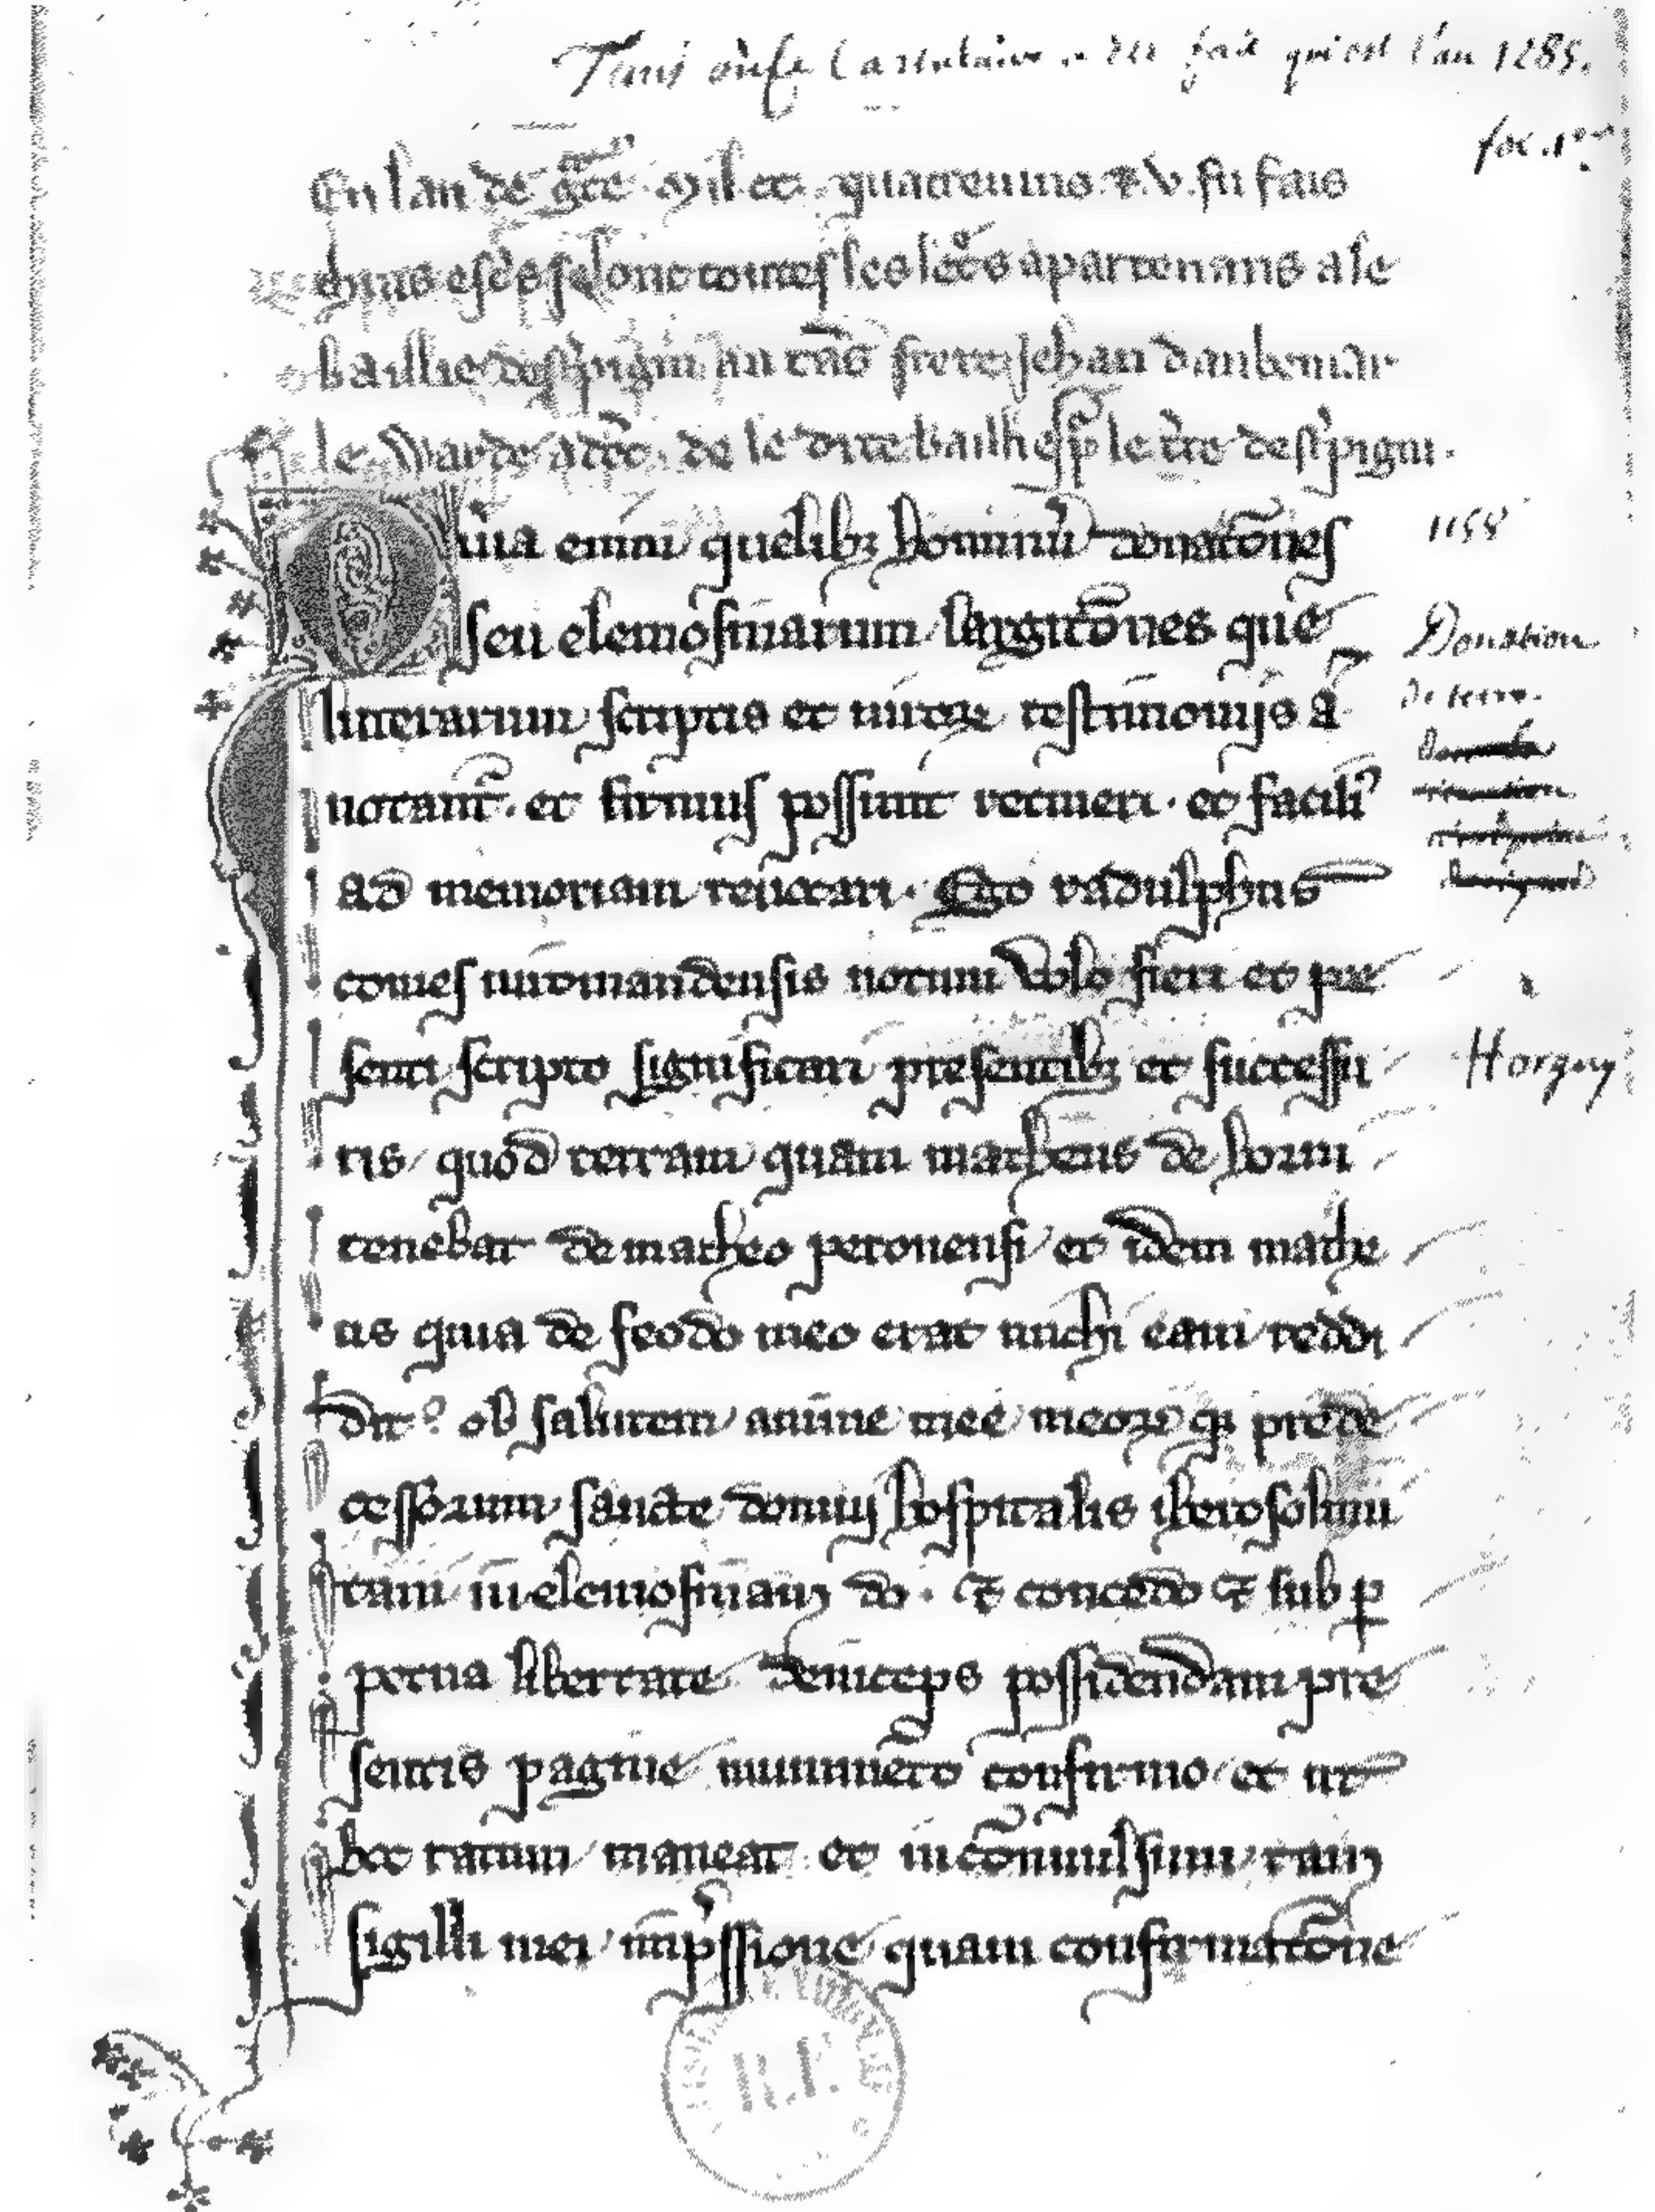 cartulaire fait qui est l'an 1285.
fol. 1er
En lan de gr̄ce. Mil. cc. quatreuins. ⁊. v. fu fais
selonc toutes les letr̄s apartenans a le
baillie desterpigni au tāns frere Jehan daubemar
le Warde adōc. de le dite baillie le desterpigni.
Quia enim quelibꝫ hominū donatōnes
1158
seu elemosinarum largitōnes que
Donation
litterarum scriptis et uirorꝝ testimonijs a
de terre.
notant᷑. et firmius possunt retineri. et faciliꝰ
ad memoriam reuocari. Ego radulphus
comes uiromandensis notum volo fieri et pre
senti scripto significari presentibꝫ et successu
Horgny
ris quod terram quam matheus de horni
tenebat de matheo peronensi et idem mathe
us quia de feodo meo erat michi eam reddi
dit ob salutem anime mee meorꝝ qꝫ prede
cessorum sancte domui hospitalis iherosolimi
tani in elemosinam do. ⁊ concedo ⁊ sub ꝑ
petua libertate deinceps possidendam pre
sentis pagine munimēto confirmo et ut
hoc ratum maneat et inconuulsum tam
sigilli mei imp̓ssione quam confirmatōne
R.F.